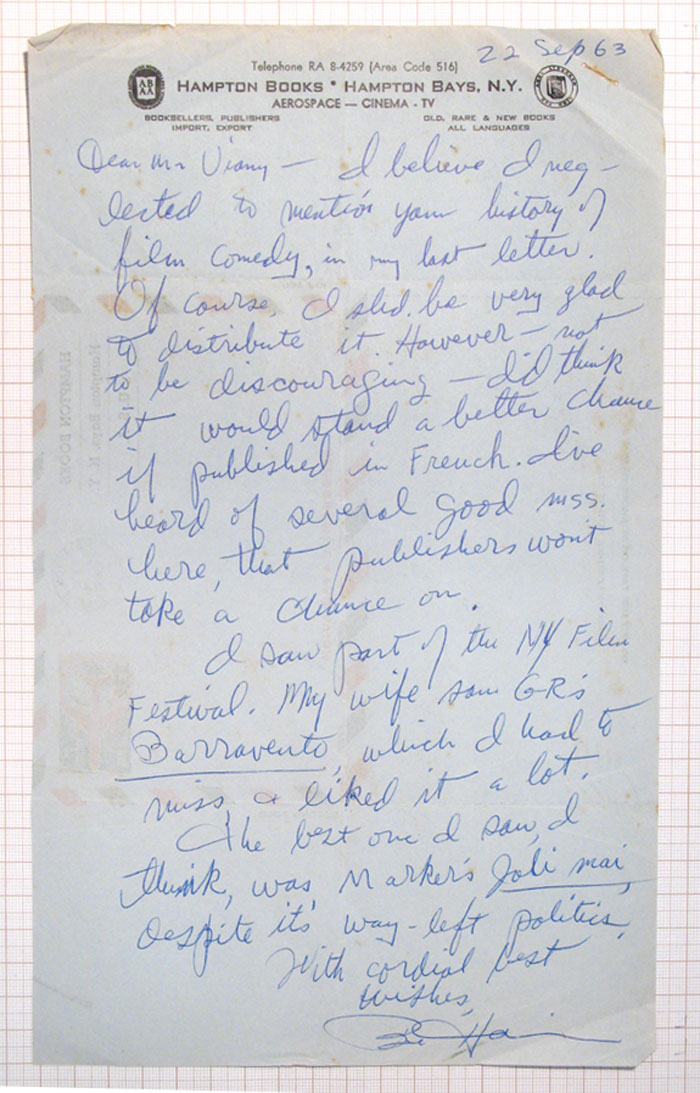 22 Sep 63
Telephone RA 8-4259 (Area Code 516)
AB
AA
HAMPTON BOOKS * HAMPTON BAYS, N.Y.
AEROSPACE — CINEMA - TV
BOOKSELLERS, PUBLISHERS
IMPORT, EXPORT
OLD, RARE & NEW BOOKS
ALL LANGUAGES
Dear Mr Viany — I believe I neg-
lected to mention your history of
film comedy, in my last letter.
Of course, I shd. be very glad
to distribute it. However — not
to be discouraging — I'd think
it would stand a better chance
if published in French. I've
heard of several good mss.
here, that publishers won't
take a chance on.
I saw part of the NY Film
Festival. My wife saw GR's
Barravento, which I had to
miss, & liked it a lot.
The best one I saw, I
think, was Marker's Joli mai,
despite it's way-left politics.
With cordial best
wishes,
HAMPTON BOOKS
Hampton Bays, N. Y.